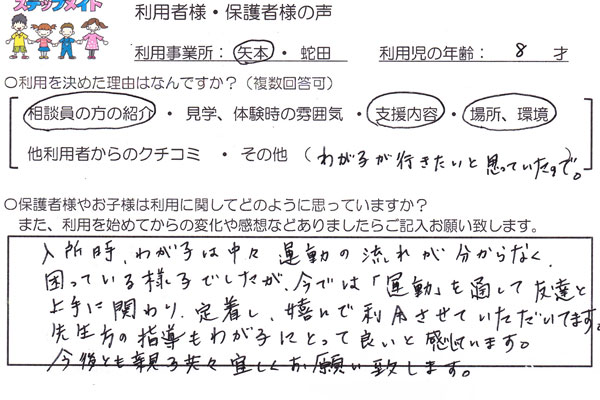 ステップメイト
利用者様・保護者様の声
利用事業所：矢本・蛇田　利用児の年齢：8才
○利用を決めた理由はなんですか？（複数回答可）
相談員の方の紹介・見学、体験時の雰囲気・支援内容・場所、環境
他利用者からのクチコミ・その他（わが子が行きたいと思っていたので。）
○保護者様やお子様は利用に関してどのように思っていますか？
また、利用を始めてからの変化や感想などありましたらご記入お願い致します。
入所時、わが子は中々運動の流れが分からなく、
困っている様子でしたが、今では「運動」を通して友達と
上手に関わり、定着し、嬉んで利用させていただいてます。
先生方の指導もわが子にとって良いと感じています。
今後とも親子共々宜しくお願い致します。